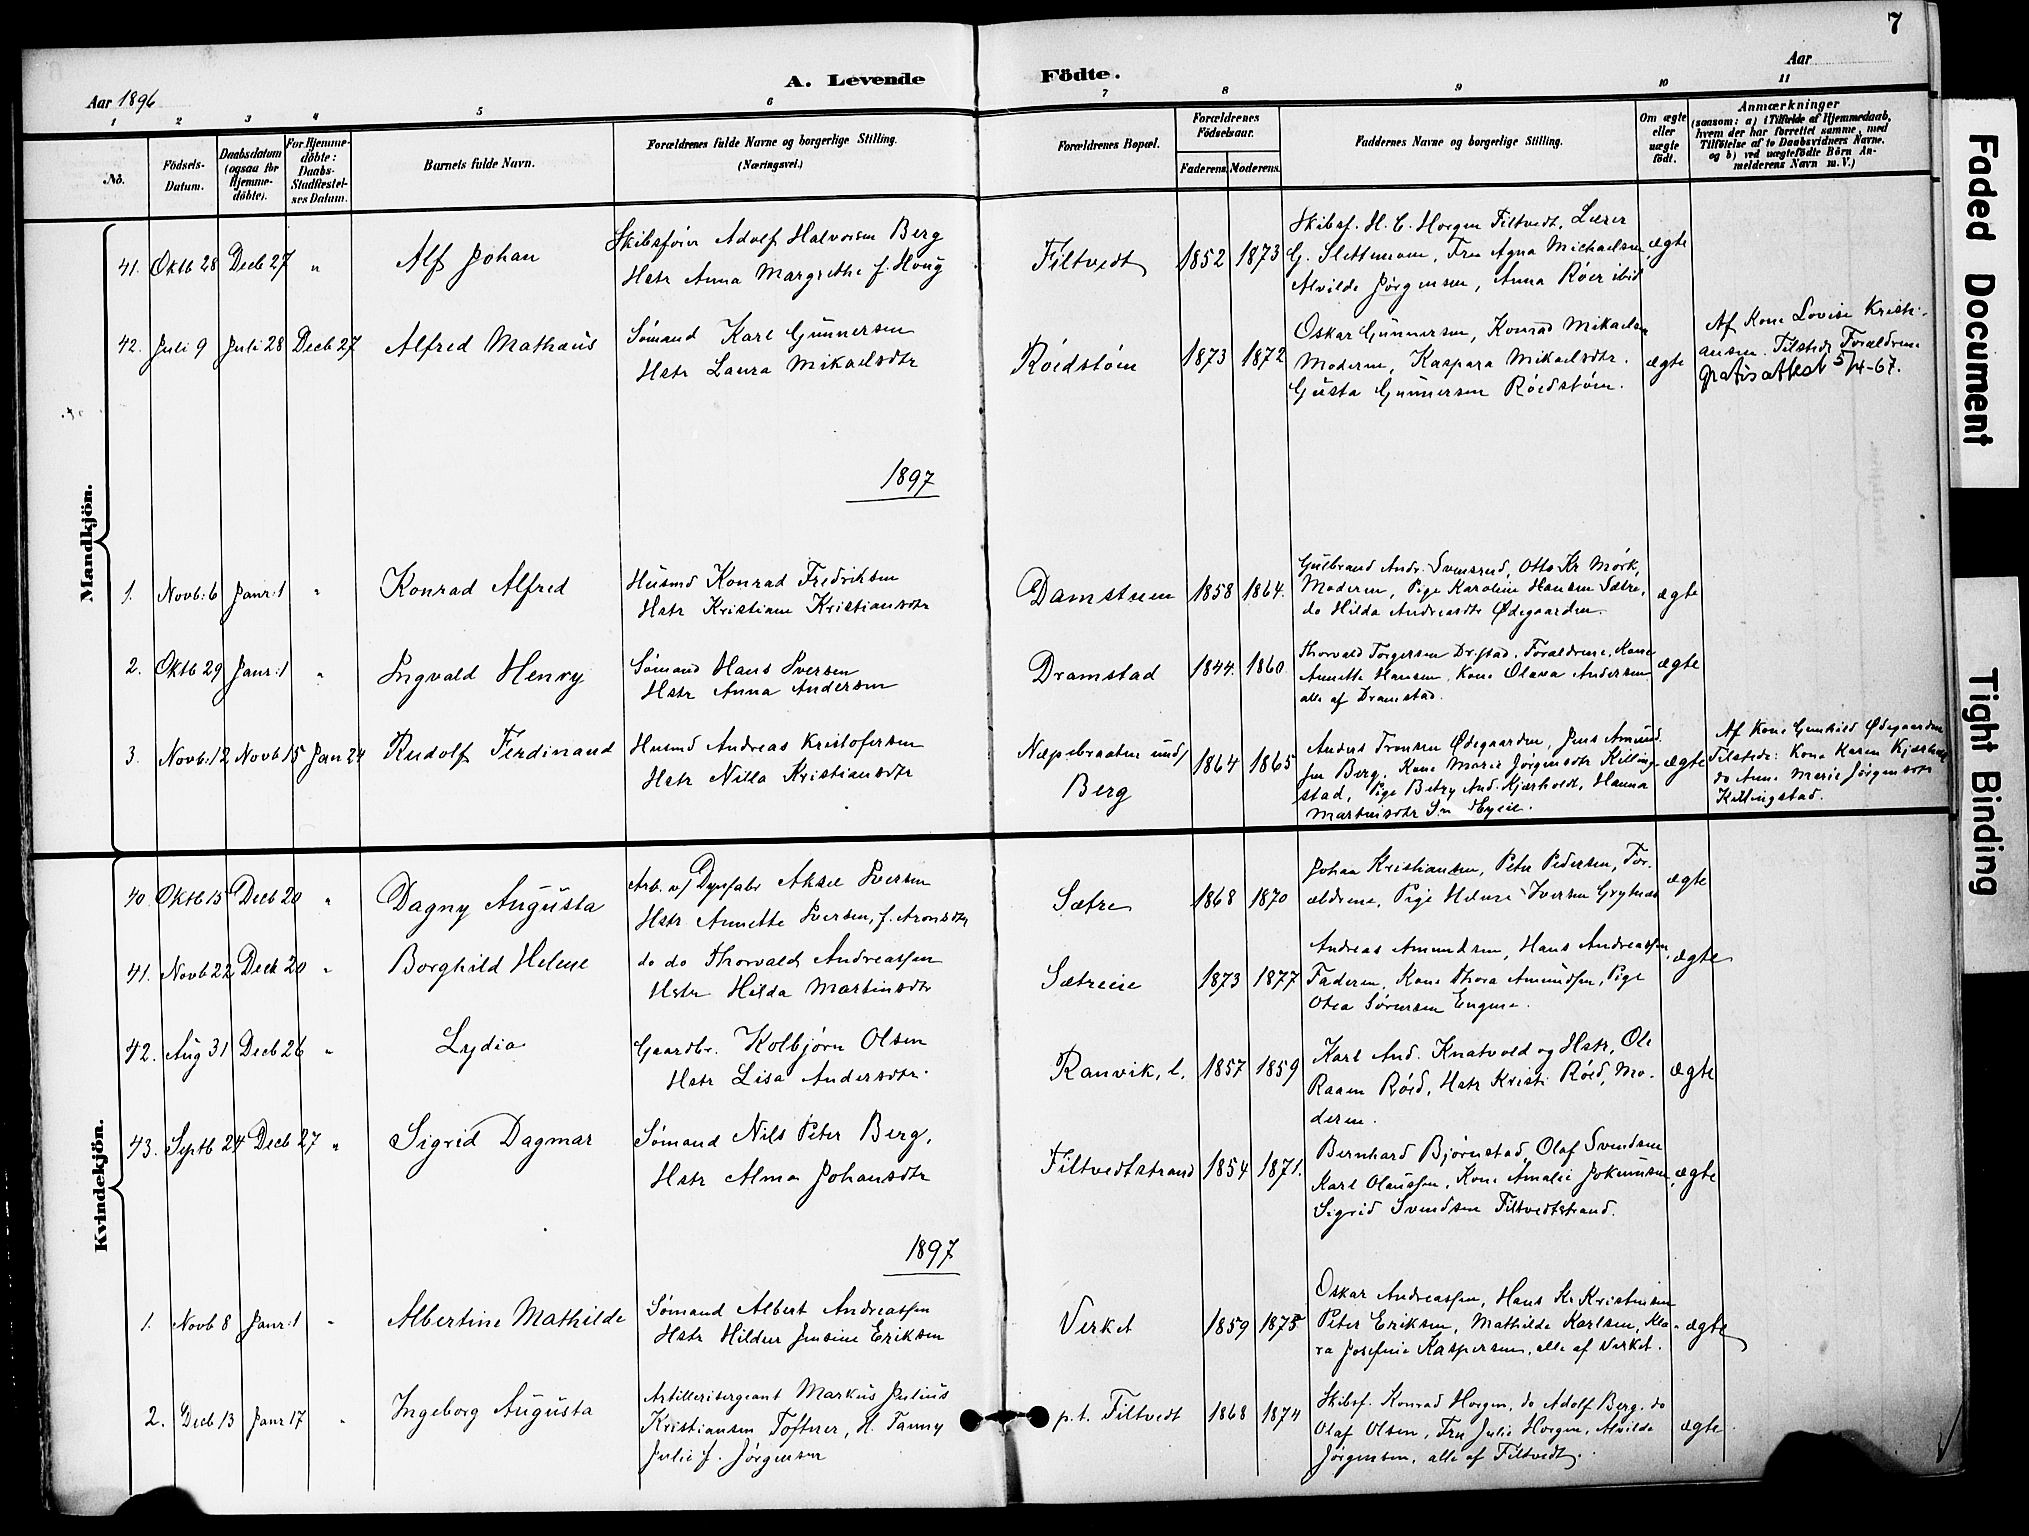 7
A. Levende Födte.
Aar 1896
Aar
1 2 3 4 5 6 7 8 9 10 11
No.
Födsels-Datum.
Daabsdatum (ogsaa for Hjemme-döbte).
For Hjemme-döbte: Daabs-Stadfæstel-ses Datum.
Barnets fulde Navn.
Forældrenes fulde Navne og borgerlige Stilling. (Næringsvei.)
Forældrenes Bopæl.
Forældrenes Födselsaar.
Faderens. Moderens.
Faddernes Navne og borgerlige Stilling.
Om ægte eller uægte födt.
Anmærkninger
(saasom: a) i Tilfælde af Hjemmedaab, hvem der har forrettet samme, med Tilföielse af to Daabsvidners Navne, og b) ved uægtefödte Börn An-melderens Navn m. V.)
Mandkjön.
41. Oktb 28 Decb 27 " Alf Johan
Skibsfører Adolf Halvorsen Berg
Hstr Anna Margrethe f. Houg
Filtvedt 1852 1873
Skibsf. H. C. Horgen Filtvedt, Lærer
G. Slettemoen, Fru Agna Michaelsen
Alvilde Jørgensen, Anna Røer ibid
ægte
42. Juli 9 Juli 28 Decb 27 Alfred Mathæus
Sømand Karl Gunnersen
Hstr Laura Mikaelsdtr
Røedstøen 1873 1872
Oskar Gunnersen, Konrad Mikaelsen
Moderen, Kaspara Mikaelsdtr.
Gusta Gunnersen Røedstøen.
ægte
Af Kone Lovise Kristi-
ansen. Tilstede Forældrene
gratisattest 5/4-67.
1897
1. Novb: 6 Janr: 1 " Konrad Alfred
Husmd Konrad Fredriksen
Hstr Kristiane Kristiansdtr
Damstuen 1858 1864.
Gulbrand Andr. Svensrud, Otto Kr Mørk,
Moderen, Pige Karoline Hansen Sætre,
do Hilda Andreasdtr Ødegaarden.
ægte
2. Oktb 29 Janr: 1 " Ingvald Henry
Sømand Hans Iversen
Hstr Anna Andersen
Dramstad 1844. 1860
Thorvald Torgersen Dr.stad. Forældrene, Kone
Annette Hansen, Kone Olava Andersen
alle af Dramstad.
ægte
3. Novb: 12 Novb 15 Jan 24 Rudolf Ferdinand
Husmd Andreas Kristofersen
Hstr Nilla Kristiansdtr
Næpebraaten und/
Berg
1864 1865
Anders Tronsen Ødegaarden, Jens Amund-
sen Berg. Kone Marie Jørgensdtr Killing-
stad, Pige Betzy And. Kjærholdt, Hanna
Martinsdtr
ægte
Af Kone Gunhild Ødegaarden
Tilstede: Kone Karen Kjærholdt
do Anne Marie Jørgensdtr
Killingstad.
Kvindekjön.
40. Oktb 15 Decb 20 " Dagny Augusta
Arb. v/ Dynfabr Aksel Iversen
Hstr Annette Iversen, f. Aronsdtr
Sætre 1868 1870
Johan Kristiansen, Peter Pedersen, For-
ældrene, Pige Helene Iversen Grytnæs
ægte
41. Novb 22 Decb 20 " Borghild Helene
do do Thorvald Andreassen
Hstr Hilda Martinsdtr
Sætreeie 1873 1877
Andreas Amundsen, Hans Andreassen,
Faderen, Kone Thora Amundsen, Pige
Otea Sørensen Engene.
ægte
42. Aug 31 Decb 26 " Lydia
Gaardbr. Kolbjørn Olsen
Hstr Lisa Andersdtr.
Ranvik, l. 1857 1859
Karl And. Knatvold og Hstr, Ole
Raaen Røed, Hstr Kristi Røed, Mo-
deren.
ægte
43. Septb 24 Decb 27 " Sigrid Dagmar
Sømand Nils Peter Berg,
Hstr Alma Johansdtr
Filtvedtstrand 1854 1871.
Bernhard Bjørnstad, Olaf Svendsen
Karl Olaussen, Kone Amalie Jokumsen,
Sigrid Svendsen Filtvedtstrand.
ægte
1897
1. Novb 8 Janr: 1 " Albertine Mathilde
Sømand Albert Andreassen
Hstr Hildur Jensine Eriksen
Verket 1859 1875
Oskar Andreassen, Hans Kr Kristensen
Peter Eriksen, Mathilde Karlsen, Kla-
ra Josefine Kaspersen, alle af Verket.
ægte
2. Decb 13 Janr 17 " Ingeborg Augusta
Artillerisergeant Markus Julius
Kristiansen Toftner, H. Fanny
Julie f. Jørgensen
p.t. Filtvedt 1868 1874
Skibsf. Konrad Horgen, do Adolf Berg. do
Olaf Olsen, Fru Julie Horgen, Alvilde
Jørgensen, alle af Filtvedt.
ægte
Faded Document
Tight Binding